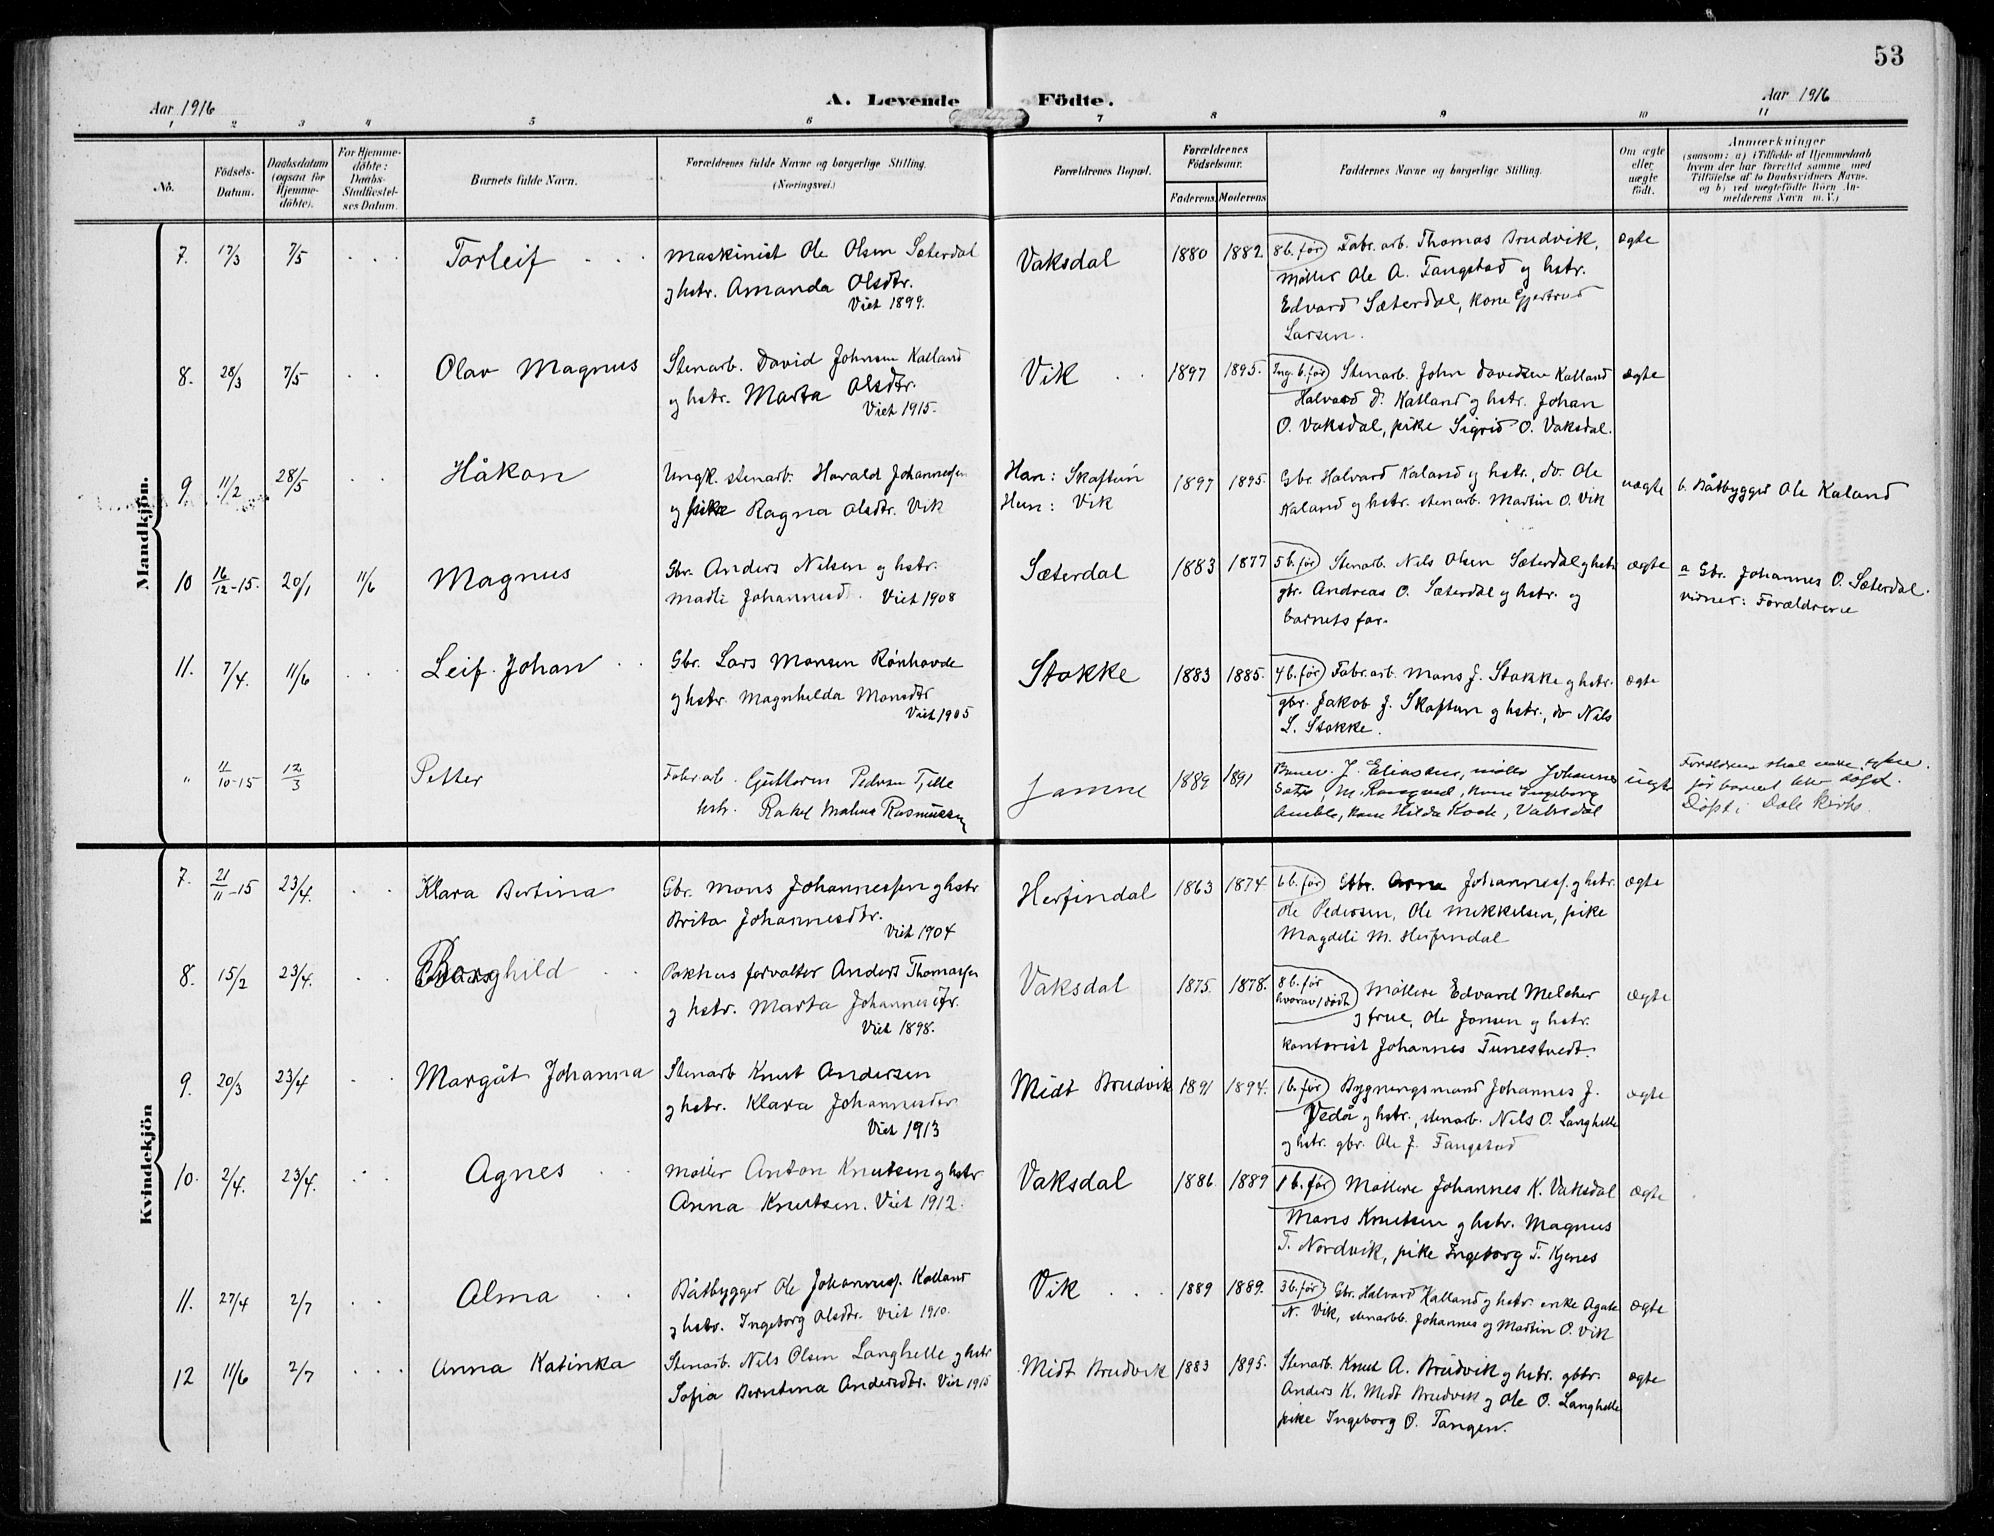 53
Aar 1916
A. Levende
Födte.
Aar 1916
1 2 3 4 5 6 7 8 9 10 11
No.
Födsels-
Datum.
Daabsdatum
(ogsaa for
Hjemme-
döbte).
For Hjemme-
döbte:
Daabs-
Stadfæstel-
ses Datum.
Barnets fulde Navn.
Forældrenes fulde Navne og borgerlige Stilling.
(Næringsvei.)
Forældrenes Bopæl.
Forældrenes
Födselsaar.
Faderens. Moderens.
Faddernes Navne og borgerlige Stilling.
Om ægte
eller
uægte
födt.
Anmærkninger
(saasom: a) i Tilfælde af Hjemmedaab
hvem der har forrettet samme, med
Tilföielse af to Daabsvidners Navne,
og b) ved uægtefödte Börn An-
melderens Navn m. V.)
Mandkjön.
7. 17/3 7/5 Torleif
Maskinist Ole Olsen Sæterdal
og hstr. Amanda Olsdtr.
Viet 1899.
Vaksdal 1880 1882.
8b. før Fabr. arb. Thomas Brudvik,
Møller Ole A. Tangstad og hstr.
Edvard Sæterdal, kone Gjertrud
Larsen.
ægte
8. 28/3 7/5 Olav Magnus
Stenarb. David Johnsen Kalland
og hstr. Marta Olsdtr.
Viet 1915.
Vik 1897 1895.
Ing. b. før Stenarb. John Davidsen Kalland
Halvard D. Kalland og hstr. Johan
O. Vaksdal, pike Sigrid O. Vaksdal.
ægte
9. 11/2 28/5 Håkon
Ungk. stenarb. Harald Johannessen
og pike Ragna Olsdtr. Vik
Han: Skaftun
Hun: Vik
1897 1895.
Gbr. Halvard Kaland og hstr., do. Ole
Kaland og hstr. stenarb. Martin O. Vik
uægte
b. Båtbygger Ole Kaland
10 16/12-15. 20/1 11/6 Magnus
Gbr. Anders Nilsen og hstr.
Madli Johannesd. Viet 1908
Sæterdal 1883 1877
5b. før Stenarb. Nils Olsen Sæterdal og hstr
gbr. Andreas O. Sæterdal og hstr. og
barnets far.
ægte
a Gbr. Johannes O. Sæterdal.
vidner: Forældrene
11. 7/4. 11/6 Leif Johan
Gbr. Lars Monsen Rönhovde
og hstr. Magnhilda Monsdtr
Viet 1905
Stokke 1883 1885.
4b. før Fabr. arb. Mons J. Stokke og hstr.
gbr. Jakob J. Skaftun og hstr., do Nils
L. Stokke.
ægte
" 11/10-15 12/3 Petter
Fabr arb. Guttorm Pedersen Tjelle
hstr. Rakel Malene Rasmussen
Jamne 1889 1891
J. Eliassen, møller Johannes
kone Ingeborg
kone Hilda Koch, Vaksdal
uægte
før barnet blev døpt.
Døpt i Dale kirke.
Kvindekjön
7. 21/11-15 23/4. Klara Bertina
Gbr. Mons Johannessen og hstr
Brita Johannesdtr.
Viet 1904
Herfindal 1863 1874
6b. før Gbr. Arne Johanness. og hstr.
Ole Pedersen, Ole Mikkelsen, pike
Magdeli M. Herfindal
ægte
8. 15/2 23/4. Borghild
Pakhusforvalter Anders Thomassen
og hstr. Marta Johannesdtr.
Viet 1898.
Vaksdal 1875. 1878.
8b. før
hvorav 1 dødt
Møllere Edvard Melcher
og frue, Ole Jonsen og hstr.
kontorist Johannes Tunestvedt.
ægte
9. 20/3 23/4 Margåt Johanna
Stenarb Knut Andersen
og hstr. Klara Johannesdtr
Viet 1913
Midt Brudvik 1891 1894.
1b. før Bygningsmand Johannes J.
Vedå og hstr., stenarb. Nils O. Langhelle
og hstr. gbr. Ole J. Tangstad
ægte
10. 2/4. 23/4. Agnes
Møller Anton Knutsen og hstr
Anna Knutsen. Viet 1912.
Vaksdal 1886 1889
1b. før Møllere Johannes K. Vaksdal
Mons Knutsen og hstr. Magnus
T. Nordvik, pike Ingeborg T. Kjenes
ægte
11. 27/4 2/7 Alma
Båtbygger Ole Johanness. Kalland
og hstr. Ingeborg Olsdtr. Viet 1910.
Vik 1889 1889.
3b. før Gbr. Halvard Kalland og hstr. enke Agate
N. Vik, stenarbb. Johannes og Martin O. Vik
ægte
12 11/6 2/7 Anna Katinka
Stenarb. Nils Olsen Langhelle og hstr
Sofia Berntina Andersdtr. Viet 1915
Midt Brudvik 1883 1895.
Stenarb. Knut A. Brudvik og hstr. gbbr.
Anders K. Midt Brudvik og Ole O. Langhelle
pike Ingeborg O. Tangen.
ægte